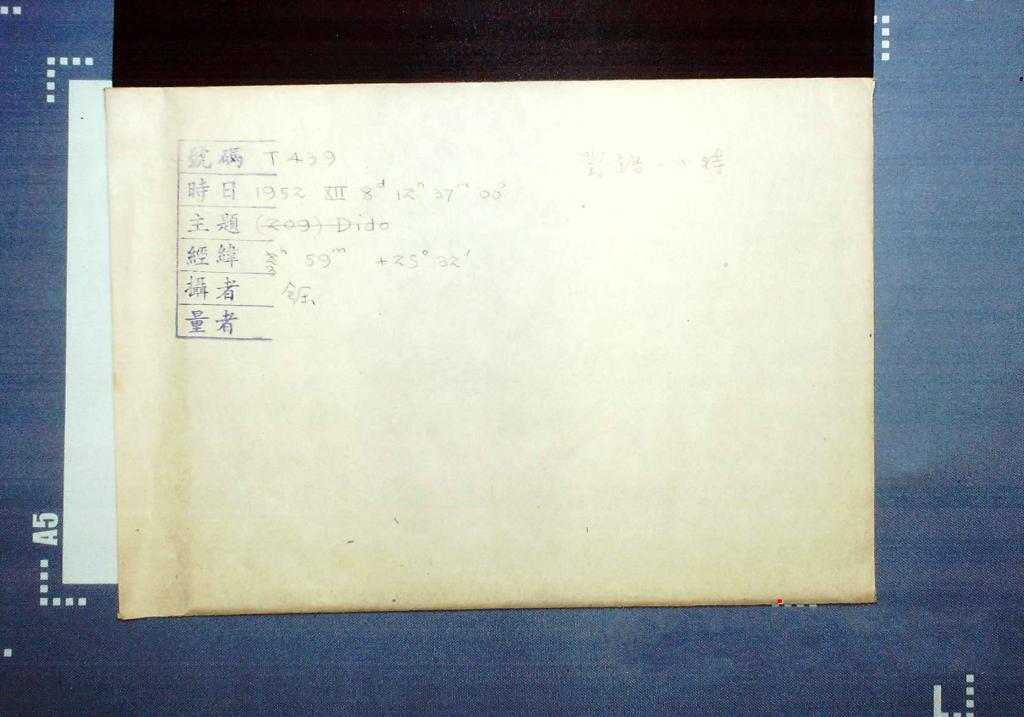 號碼 T 439
對錯一小時
時日 1952 XII 8d 12h 37m 00s
主題 (209) Dido
經緯 3h 59m +25° 32'
攝者
量者
A5